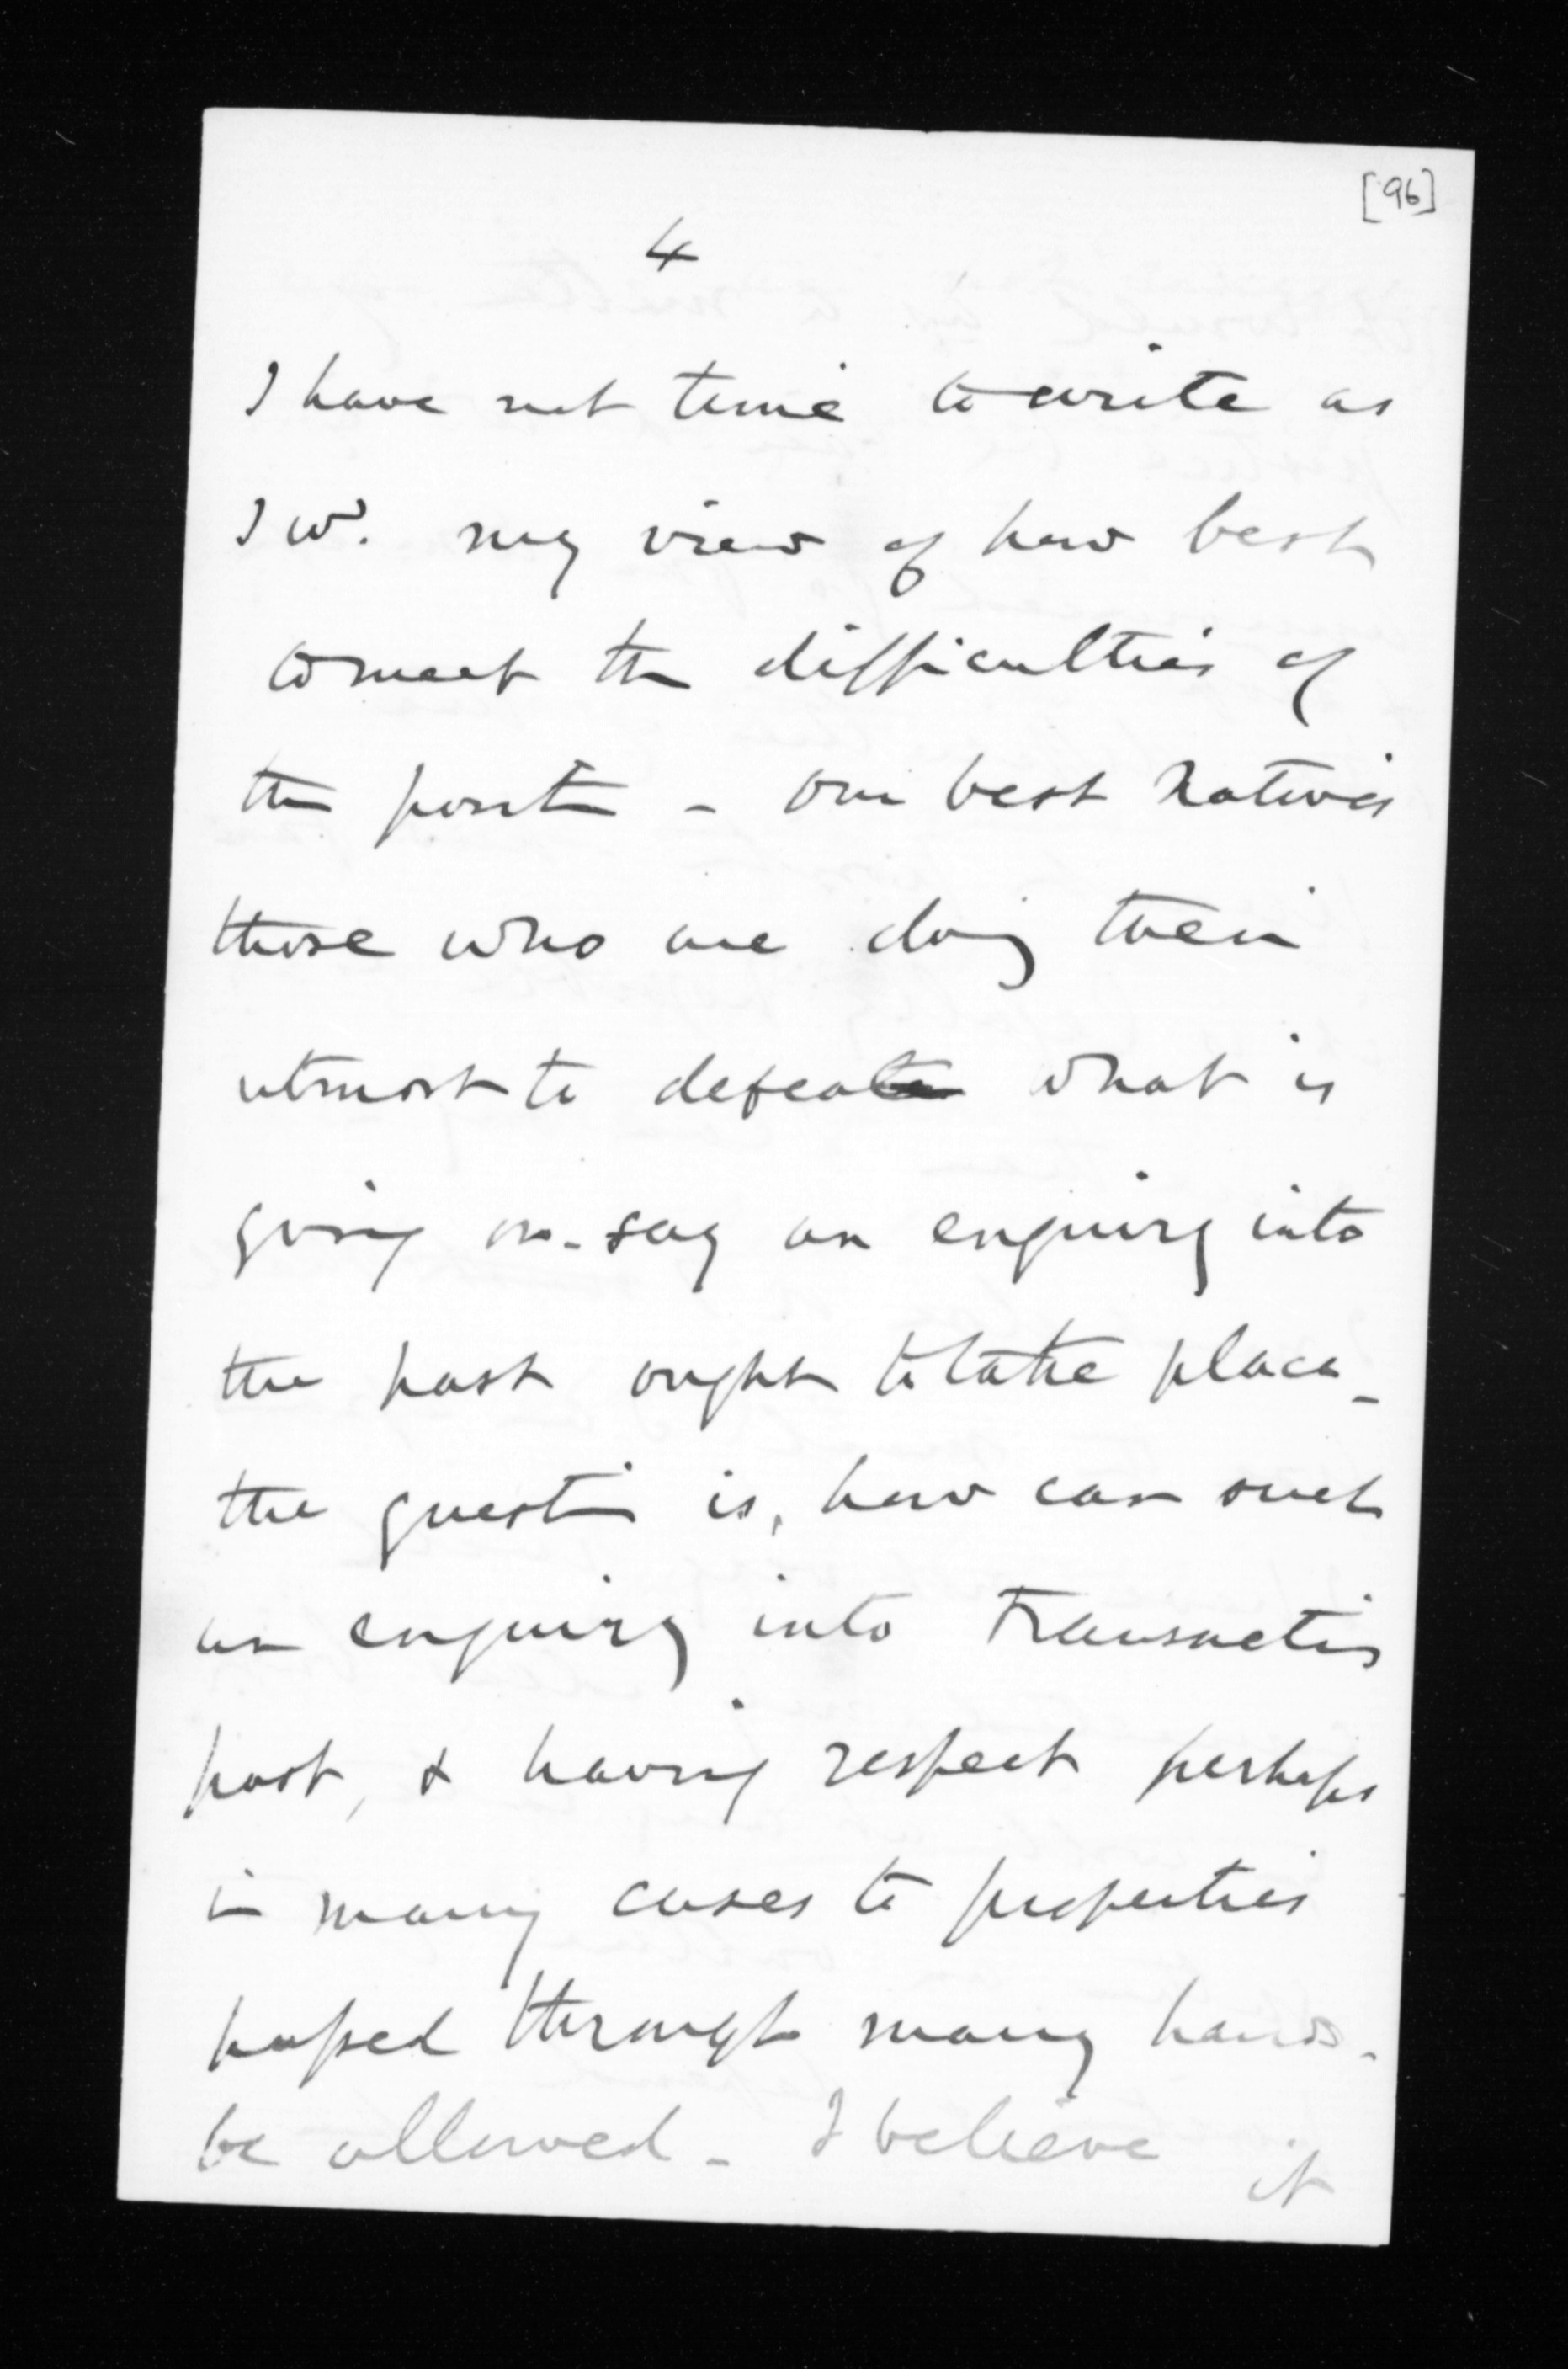 [96]
4
I have not time to write as
I wd. my view of how best
to meet the difficulties of
the positn - our best Natives
those who are doing their
utmost to defeat what is
going on - say an enquiry into
the past ought to take place -
the questn is, how can such
an enquiry into transactns
past, & having respect perhaps
in many cases to properties
passed through many hands -
be allowed - I believe it